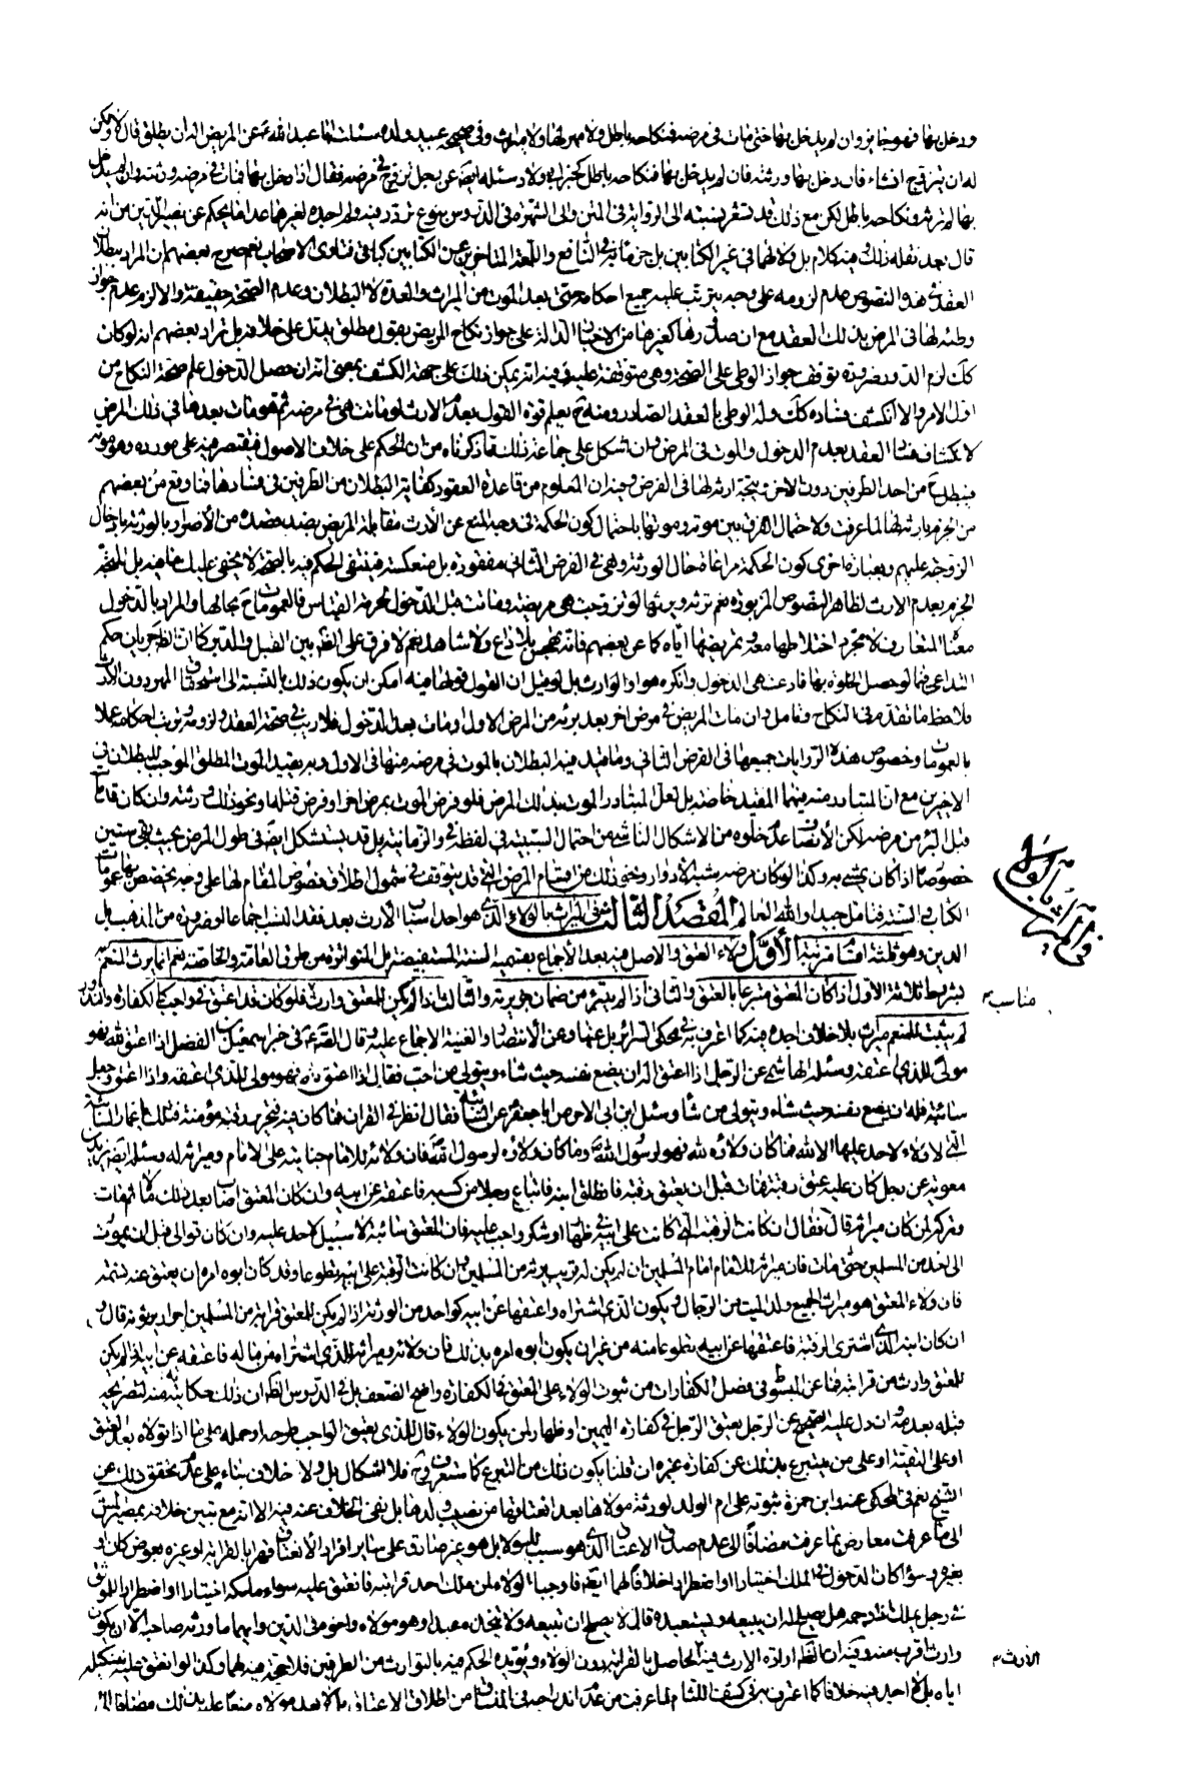 ودخل بها فهو جائز وان لم يدخل بها حتى مات في مرضه فنكاحه باطل ولا مهر لها ولا ميراث وفي صحيحة عبيد ولده سئلت ابا عبد الله ع عن المريض اله ان يطلق قال لا ولكن
له ان يتزوج ان شاء فان دخل بها ورثته فان لم يدخل بها فنكاحه باطل كخبر وسئله ايض عن رجل تزوج في مرضه فقال اذا دخل بها فمات في مرضه ورثته وان لم يدخل
بها لم ترثه ونكاحه باطل لكن مع ذلك قد تشعر نسبته الى الرواية في المتن والى الشهرة في الدروس بنوع تردد فيه ولم اجده لغيرهما عدا ما يحكى عن نصير الدين من انه
قال بعد نقله ذلك وفيه كلام بل
العقد في هذه النصوص عدم لزومه على وجه يترتب عليه جميع احكامه حتى بعد الموت من الميراث والعدة لا البطلان وعدم الصحة حقيقة والا لزم عدم جواز
وطئه لها في المرض بذلك العقد مع ان صدرها كغيرها من الاخبار الدالة على جواز نكاح المريض بقول مطلق يدل على خلافه بل زاد بعضهم انه لو كان
كك لزم الدور ضرورة توقف جواز الوطي على الصحة وهي متوقفة عليه وفيه انه يمكن ذلك على جهة الكشف بمعنى انه ان حصل الدخول علم صحة النكاح من
اول الامر والا انكشف فساده كك وله الوطي بالعقد الصادر ومنه ح يعلم قوة القول بعدم الارث لو ماتت هي في مرضه ثم هو مات بعدها في ذلك المرض
لانكشاف فساد العقد بعدم الدخول والموت في المرض وان اشكل على جماعة ذلك مما ذكرناه من ان الحكم على خلاف الاصول فيقتصر فيه على مورده وهو موته
من احد الطرفين دون الاخر ارثه لها في الفرض وفيه ان المعلوم من قاعدة العقود كفاية البطلان من الطرفين في فسادها فما وقع من بعضهم
من الجزم بارثه لها لما عرفت ولاحتمال الفرق بين موته وموتها باحتمال كون الحكمة في وجه المنع عن الارث مقابلة المريض بضد قصده من الاضرار بالورثة بادخال
الزوجة عليهم وبعبارة اخرى كون الحكمة مراعاة حال الورثة وهي في الفرض الثاني مفقودة بل منعكسة فينتفي الحكم فيه بالصحة لا يخفى عليك ما فيه بل المتجه
الجزم بعدم الارث لظاهر النصوص المزبورة نعم ترثه ويرثها لو تزوجت هي مريضة وماتت قبل الدخول لحرمة القياس فالعمومات ح بحالها والمراد بالدخول
معناه المتعارف لا مجرد اختلاطها معه وتمريضها اياه كما عن بعضهم فانه بلا داع ولا شاهد نعم لا فرق على الظ بين القبل والدبر كما ان الظ جريان حكم
التداعي فيما لو حصل الخلوة بها فادعت هي الدخول وانكره هو او الوارث بل لو قيل ان القول قولها فيه امكن ان يكون ذلك بالنسبة الى استحقاق المهر دون الارث
فلاحظ ما تقدم في النكاح وتامل وان مات المريض في مرض اخر بعد برئه من المرض الاول او مات بعد الدخول فلا ريب في صحة العقد ولزومه وترتب احكامه عملا
بالعمومات وخصوص هذه الروايات جميعها في الفرض الثاني وما قيد فيه البطلان بالموت في مرضه منها في الاول وبه يقيد الموت المطلق الموجب للبطلان في
الاخيرين مع ان المتبادر منه فيهما المقيد خاصة بل لعل المتبادر الموت بذلك المرض فلو فرض الموت بمرض اخر او فرض قتله او نحو ذلك ورثته وان كان قد مات
قبل البرء من مرضه لكن الانصاف عدم خلوه من الاشكال الناشي من احتمال السببية في لفظ في والزمانية بل قد يستشكل ايض في طول المرض بحيث بقي سنتين
خصوصا اذا كان يمشي به وكذا لو كان مرضه شبه الادوار ونحو ذلك من اقسام المرض التي قد يتوقف في شمول اطلاق نصوص المقام لها على وجه يخصص بها عمومات
الكتاب والسنة فتامل جيدا والله العالم المقصد الثالث في الميراث بالولاء الذي هو احد اسباب الارث بعد فقد النسب اجماعا او ضرورة من المذهب بل
الدين وهو ثلثة اقسام مرتبة الاول ولاء العتق والاصل فيه بعد الاجماع بقسميه السنة المستفيضة بل المتواترة من طرق العامة والخاصة نعم انما يرث المنعم
بشريطة ثلاثة الاول اذا كان العتق متبرعا بالعتق والثاني اذا لم يتبرء من ضمان جريرته والثالث اذا لم يكن للمعتق وارث فلو كان قد اعتق في واجب كالكفارة والنذر
لم يثبت للمنعم ميراث بلا خلاف اجده فيه كما اعترف به في محكي السرائر بل عنها وعن الانتصار والغنية الاجماع عليه وقال الصادق ع في خبر اسمعيل بن الفضل اذا اعتق لله فهو
مولى للذي اعتقه وسئله الهاشمي عن الرجل اذا اعتق اله ان يضع نفسه حيث شاء ويتولى من احب فقال اذا اعتق لله فهو مولى للذي اعتقه واذا اعتق وجعل
سائبة فله ان يضع نفسه حيث شاء ويتولى من شاء وسئل ابن ابي الاحوص ابا جعفر ع عن السائبة فقال انظر في القران فما كان فيه فتحرير رقبة مؤمنة فتلك يا عمار السائبة
التي لا ولاء لاحد عليها الا الله فما كان ولاؤه لله فهو لرسول الله ص وما كان ولاؤه لرسول الله ص فان ولائه للامام جنايته على الامام وميراثه له وسئله ايض بريد بن
معوية عن رجل كان عليه عتق رقبة فمات قبل ان يعتق رقبة فانطلق ابنه فابتاع رجلا من كسبه فاعتقه عن ابيه وان كان المعتق اصاب بعد ذلك مالا ثم مات
وتركه لمن كان ميراثه قال فقال ان كانت الرقبة التي كانت على ابيه في ظهار او شكر او واجب عليه فان المعتق سائبة لا سبيل لاحد عليه وان كان توالى قبل ان يموت
الى احد من المسلمين حتى مات فان ميراثه للامام امام المسلمين ان لم يكن له قريب يرثه من المسلمين وان كانت الرقبة على ابيه تطوعا وقد كان ابوه امره ان يعتق عنه نسمة
فان ولاء المعتق هو ميراث لجميع ولد الميت من الرجال ويكون الذي اشتراه واعتقها عن ابيه كواحد من الورثة اذا لم يكن للمعتق قرابة من المسلمين احرار يرثونه قال و
ان كان ابنه الذي اشترى الرقبة فاعتقها عن ابيه تطوعا منه من غير ان يكون ابوه امره بذلك فان ولائه وميراثه للذي اشتراه من ماله فاعتقه عن ابيه اذا لم يكن
للمعتق وارث من قرابته فما عن المبسوط في فصل الكفارات من ثبوت الولاء على العتق في الكفارة واضح الضعف بل في الدروس الظ ان ذلك حكاية منه لتصريحه
قبله بعدمه وان دل عليه الصحيح عن الرجل يعتق الرجل في كفارة اليمين او ظهار لمن يكون الولاء قال للذي يعتق الواجب طرحه او حمله على ما اذا تولاه بعد العتق
او على التقية او على من يتبرع بذلك عن كفارة غيره ان قلنا بكون ذلك من التبرع كما ستعرف وح فلا اشكال بل ولا خلاف بناء على عدم تحقق ذلك عن
الشيخ نعم في المحكي عنه وابن حمزة ثبوته على ام الولد لورثة مولاها بعد انعتاقها من نصيب ولدها بل نفى الخلاف عنه فيه الا انه مع تبين خلافه
الى ما عرفت معارض بما عرفت مضافا الى عدم صدق الاعتاق الذي هو سبب للولاء بل هو غير صادق على ساير افراد الانعتاق قهرا بالقرابة او غيره بعوض كان او
بغيره سواء كان الدخول في الملك اختيارا او اضطرارا خلافا لهما ايض فاوجبا الولاء لمن ملك احد قرابته فانعتق عليه سواء ملكه اختيارا او اضطرارا للموثق
في رجل يملك ذا رحمه هل يصلح له ان يبيعه ويستعبده قال لا يصلح ان يبيعه ولا يتخذه عبدا وهو مولاه واخوه في الدين وايهما مات ورثه صاحبه الا ان يكون
وارث اقرب منه وفيه ان الظ ارادة الارث فيه الحاصل بالقرابة دون الولاء ويؤيده الحكم فيه بالتوارث من الطرفين فلا حجة فيه لهما وكذا لو انعتق عليه بتنكيله
اياه بل لا اجد فيه خلافا كما اعترف به في كشف اللثام لما عرفت من عدم اندراجه في المنساق من اطلاق الاعتاق
مناسب
الارث م